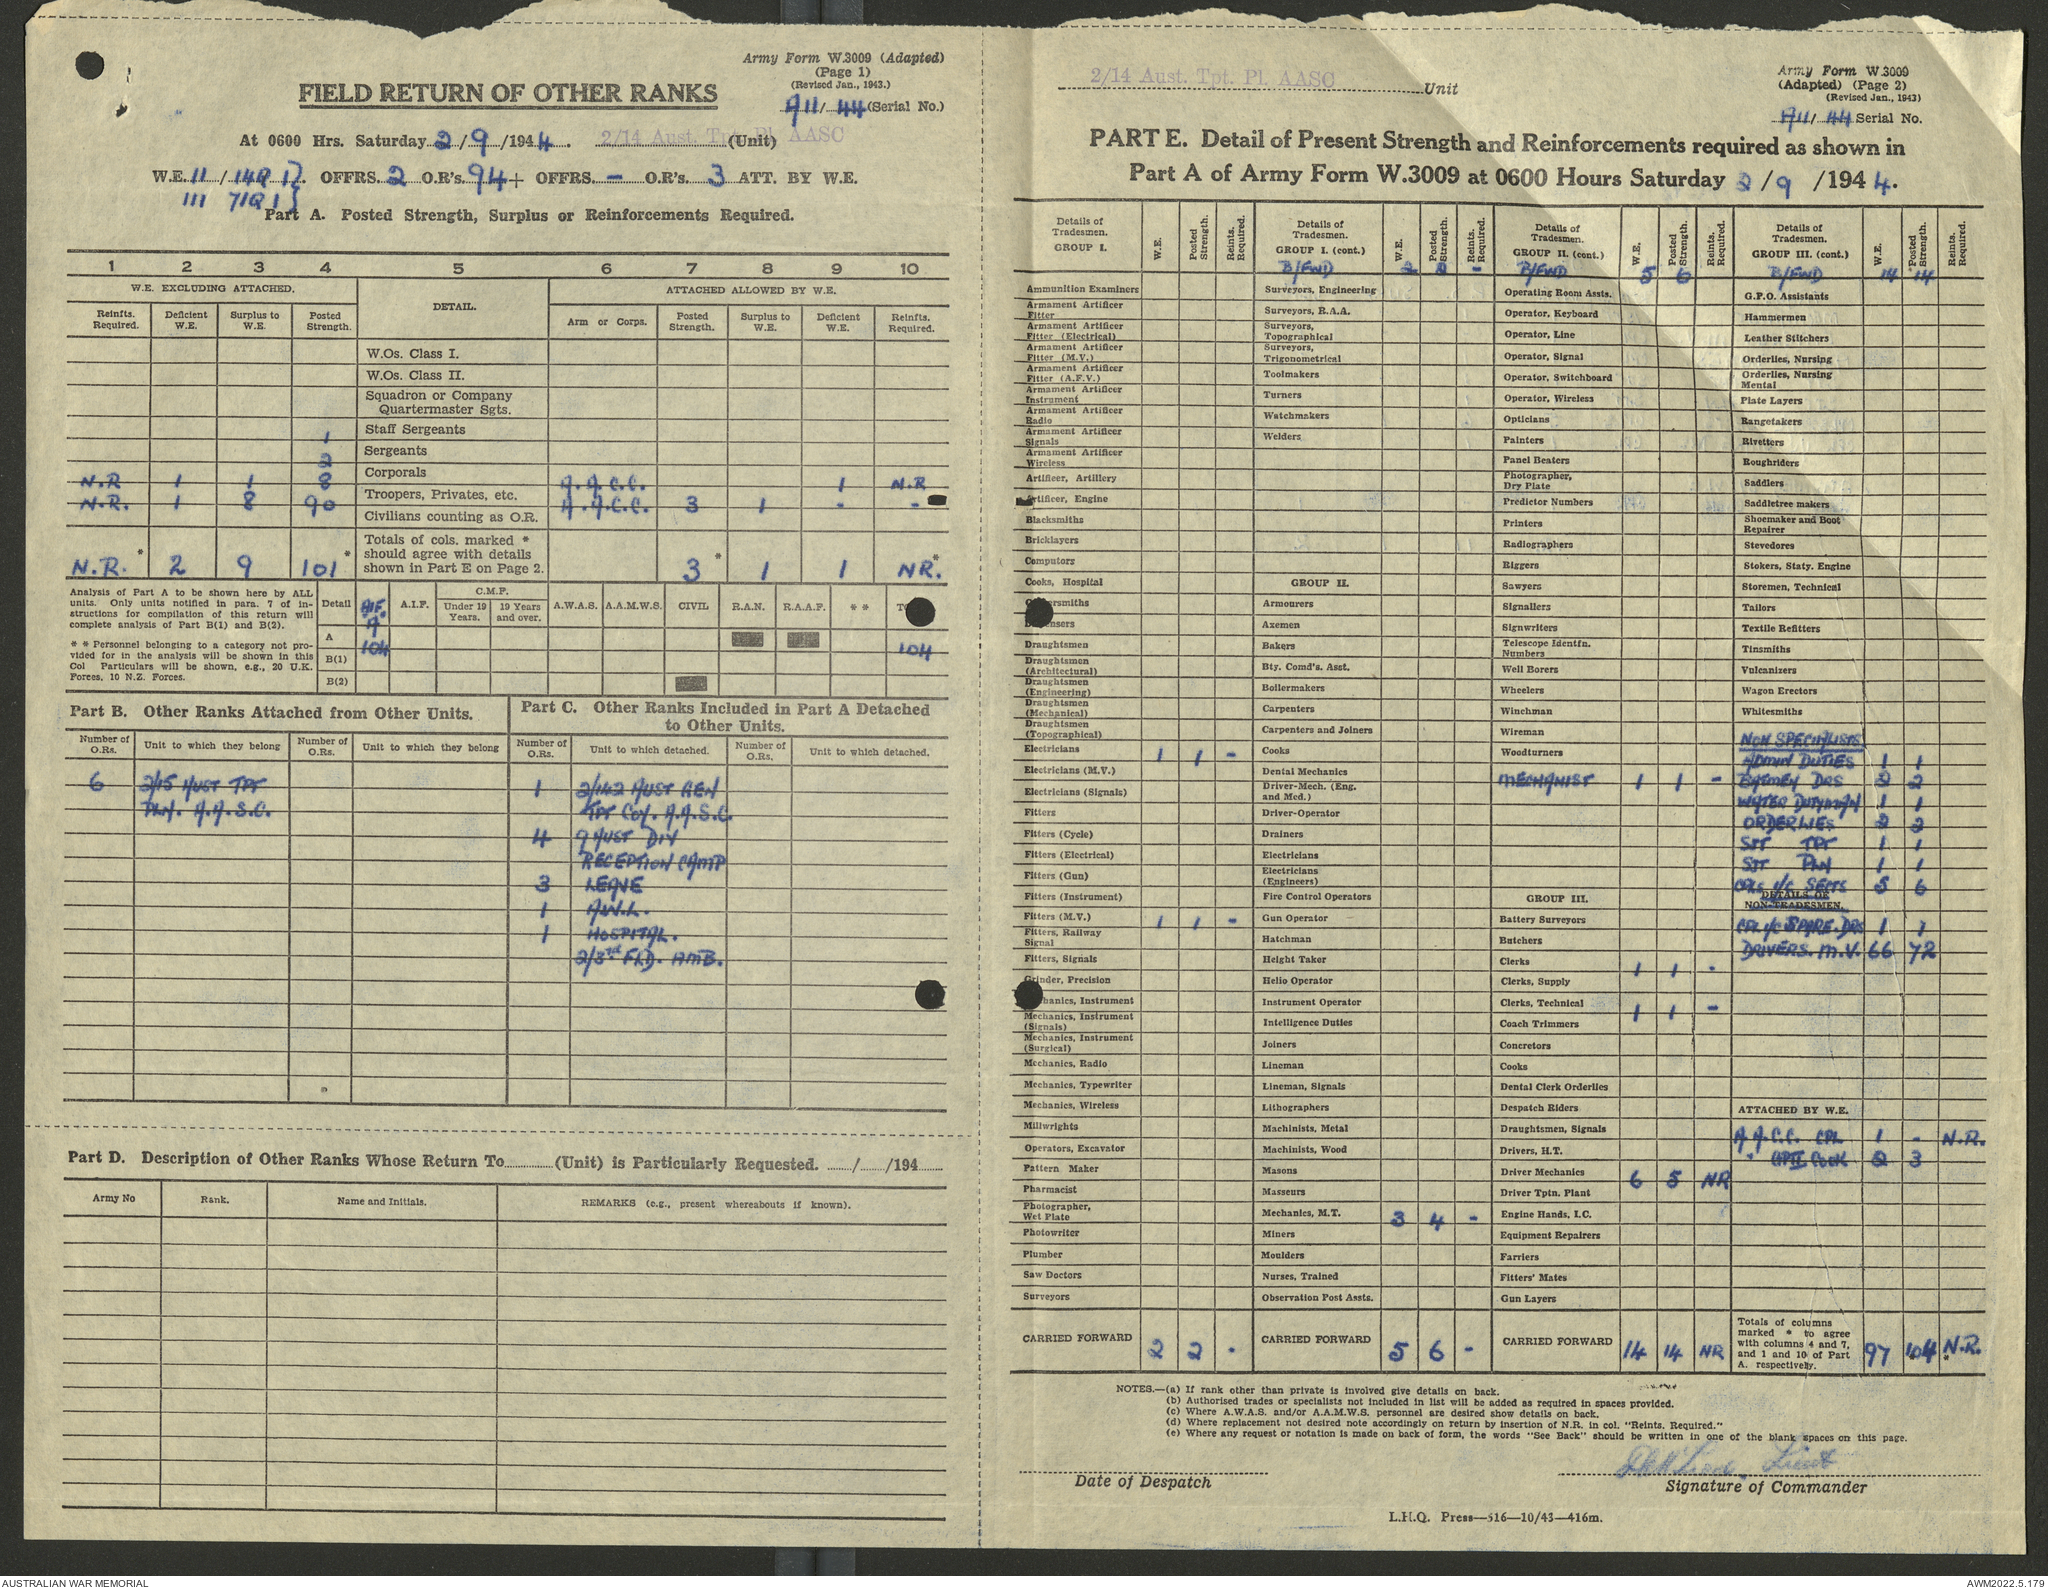 Army Form W.3009 (Adapted)
(Page 1)
(Revised Jan., 1943.)
FIELD RETURN OF OTHER RANKS
A11/ 44 (Serial No.)
At 0600 Hrs. Saturday 2/9/1944. 2/14 Aust. Tpt. Pl. AASC (Unit)
W.E. 11/14Q 1} OFFRS. 2 O.R's. 94 + OFFRS. - O.R's. 3 ATT. BY W.E.
111 71Q 1}
Part A. Posted Strength, Surplus or Reinforcements Required.
1 2 3 4 5 6 7 8 9 10
W.E. EXCLUDING ATTACHED. DETAIL. ATTACHED ALLOWED BY W.E.
Reinfts. Required. Deficient W.E. Surplus to W.E. Posted Strength. Arm or Corps. Posted Strength. Surplus to W.E. Deficient W.E. Reinfts. Required.
W.Os. Class I.
W.Os. Class II.
Squadron or Company
Quartermaster Sgts.
1 Staff Sergeants
2 Sergeants
N.R 1 1 8 Corporals A.A.C.C. 1 N.R
N.R. 1 8 90 Troopers, Privates, etc. A.A.C.C. 3 1 - -
Civilians counting as O.R.
Totals of cols. marked *
should agree with details
shown in Part E on Page 2.
N.R.* 2 9 101* 3* 1 1 NR.*
Analysis of Part A to be shown here by ALL
units. Only units notified in para. 7 of in-
structions for compilation of this return will
complete analysis of Part B(1) and B(2).
* * Personnel belonging to a category not pro-
vided for in the analysis will be shown in this
Col Particulars will be shown, e.g., 20 U.K.
Forces, 10 N.Z. Forces.
Detail AIF A.I.F. C.M.F. Under 19 Years. 19 Years and over. A.W.A.S. A.A.M.W.S. CIVIL R.A.N. R.A.A.F. * *
A 104 104
B(1)
B(2)
Part B. Other Ranks Attached from Other Units.
Number of O.Rs. Unit to which they belong Number of O.Rs. Unit to which they belong
6 2/15 AUST TPT
PLN. A.A.S.C.
Part C. Other Ranks Included in Part A Detached
to Other Units.
Number of O.Rs. Unit to which detached. Number of O.Rs. Unit to which detached.
1 2/142 AUST GEN
TPT COY. A.A.S.C.
4 9 AUST DIV
RECEPTION CAMP
3 LEAVE
1 A.W.L.
1 HOSPITAL.
2/3rd FLD. AMB.
Part D. Description of Other Ranks Whose Return To (Unit) is Particularly Requested. / /194
Army No Rank. Name and Initials. REMARKS (e.g., present whereabouts if known).
2/14 Aust. Tpt. Pl. AASC Unit
Army Form W.3009
(Adapted) (Page 2)
(Revised Jan., 1943)
A11/ 44 Serial No.
PART E. Detail of Present Strength and Reinforcements required as shown in
Part A of Army Form W.3009 at 0600 Hours Saturday 2/9/1944.
Details of Tradesmen. GROUP I. W.E. Posted Strength. Reints. Required.
Ammunition Examiners
Armament Artificer Fitter
Armament Artificer Fitter (Electrical)
Armament Artificer Fitter (M.V.)
Armament Artificer Fitter (A.F.V.)
Armament Artificer Instrument
Armament Artificer Radio
Armament Artificer Signals
Armament Artificer Wireless
Artificer, Artillery
Artificer, Engine
Blacksmiths
Bricklayers
Computors
Cooks, Hospital
Draughtsmen
Draughtsmen (Architectural)
Draughtsmen (Engineering)
Draughtsmen (Mechanical)
Draughtsmen (Topographical)
Electricians 1 1 -
Electricians (M.V.)
Electricians (Signals)
Fitters
Fitters (Cycle)
Fitters (Electrical)
Fitters (Gun)
Fitters (Instrument)
Fitters (M.V.) 1 1 -
Fitters, Railway Signal
Fitters, Signals
Grinder, Precision
Mechanics, Instrument
Mechanics, Instrument (Signals)
Mechanics, Instrument (Surgical)
Mechanics, Radio
Mechanics, Typewriter
Mechanics, Wireless
Millwrights
Operators, Excavator
Pattern Maker
Pharmacist
Photographer, Wet Plate
Photowriter
Plumber
Saw Doctors
Surveyors
CARRIED FORWARD 2 2 -
Details of Tradesmen. GROUP I. (cont.) W.E. Posted Strength. Reints. Required.
B/FWD 2 2 -
Surveyors, Engineering
Surveyors, R.A.A.
Surveyors, Topographical
Surveyors, Trigonometrical
Toolmakers
Turners
Watchmakers
Welders
GROUP II.
Armourers
Axemen
Bakers
Bty. Comd's. Asst.
Boilermakers
Carpenters
Carpenters and Joiners
Cooks
Dental Mechanics
Driver-Mech. (Eng. and Med.)
Driver-Operator
Drainers
Electricians
Electricians (Engineers)
Fire Control Operators
Gun Operator
Hatchman
Height Taker
Helio Operator
Instrument Operator
Intelligence Duties
Joiners
Lineman
Lineman, Signals
Lithographers
Machinists, Metal
Machinists, Wood
Masons
Masseurs
Mechanics, M.T. 3 4 -
Miners
Moulders
Nurses, Trained
Observation Post Assts.
CARRIED FORWARD 5 6 -
Details of Tradesmen. GROUP II. (cont.) W.E. Posted Strength. Reints. Required.
B/FWD 5 6
Operating Room Assts.
Operator, Keyboard
Operator, Line
Operator, Signal
Operator, Switchboard
Operator, Wireless
Opticians
Painters
Panel Beaters
Photographer, Dry Plate
Predictor Numbers
Printers
Radiographers
Riggers
Sawyers
Signallers
Signwriters
Telescope Identfn. Numbers
Well Borers
Wheelers
Winchman
Wireman
Woodturners
MECHANIST 1 1 -
GROUP III.
Battery Surveyors
Butchers
Clerks 1 1 -
Clerks, Supply
Clerks, Technical 1 1 -
Coach Trimmers
Concretors
Cooks
Dental Clerk Orderlies
Despatch Riders
Draughtsmen, Signals
Drivers, H.T.
Driver Mechanics 6 5 NR
Driver Tptn. Plant
Engine Hands, I.C.
Equipment Repairers
Farriers
Fitters' Mates
Gun Layers
CARRIED FORWARD 14 14 NR
Details of Tradesmen. GROUP III. (cont.) W.E. Posted Strength. Reints. Required.
B/FWD 14 14
G.P.O. Assistants
Hammermen
Leather Stitchers
Orderlies, Nursing
Orderlies, Nursing Mental
Plate Layers
Rangetakers
Rivetters
Roughriders
Saddlers
Saddletree makers
Shoemaker and Boot Repairer
Stevedores
Stokers, Staty. Engine
Storemen, Technical
Tailors
Textile Refitters
Tinsmiths
Vulcanizers
Wagon Erectors
Whitesmiths
NON SPECIALISTS
ADMIN DUTIES 1 1
BATMEN DRS 2 2
WATER DUTYMAN 1 1
ORDERLIES 2 2
SJT TPT 1 1
SJT PLN 1 1
CPLS I/C SECTS 5 6
DETAILS OF
NON-TRADESMEN.
CPL I/C SPARE. DRS 1 1
DRIVERS. M.V. 66 72
ATTACHED BY W.E.
A.A.C.C. CPL 1 - N.R.
" COOK 2 3
Totals of columns
marked * to agree
with columns 4 and 7,
and 1 and 10 of Part
A. respectively. 97 104 N.R.
NOTES.—(a) If rank other than private is involved give details on back.
(b) Authorised trades or specialists not included in list will be added as required in spaces provided.
(c) Where A.W.A.S. and/or A.A.M.W.S. personnel are desired show details on back.
(d) Where replacement not desired note accordingly on return by insertion of N.R. in col. "Reints. Required."
(e) Where any request or notation is made on back of form, the words "See Back" should be written in one of the blank spaces on this page.
Lieut
Date of Despatch Signature of Commander
L.H.Q. Press—516—10/43—416m.
AUSTRALIAN WAR MEMORIAL AWM2022.5.179